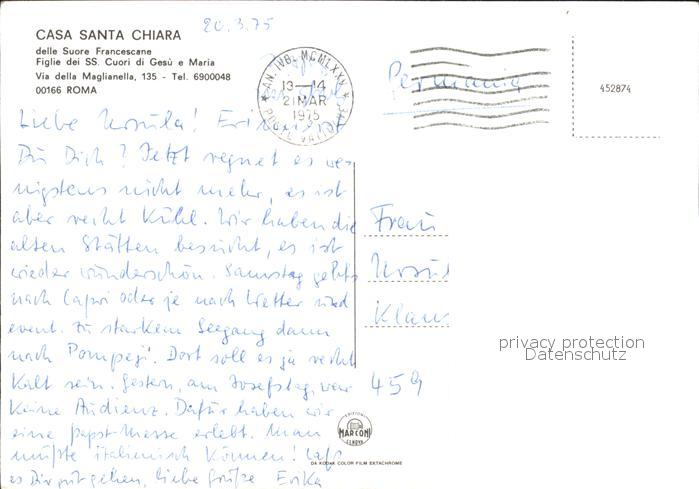 20.3.75
CASA SANTA CHIARA
delle Suore Francescane
Figlie dei SS. Cuori di Gesù e Maria
Via della Maglianella, 135 - Tel. 6900048
00166 ROMA
AN. IVB. MCMLXXV
13-14
21 MAR
1975
POSTE VATICANE
Germania
452874
Liebe Ursula! Erinnerst
Du Dich? Jetzt regnet es we-
nigstens nicht mehr, es ist
aber recht kühl. Wir haben die
alten Stätten besucht, es ist
wieder wunderschön. Samstag geht's
nach Capri oder je nach Wetter und
event. zu starkem Seegang dann
nach Pompeji. Dort soll es ja recht
kalt sein. Gestern, am Josefstag, war
keine Audienz. Dafür haben wir
eine Papst-Messe erlebt. Man
müßte italienisch können! Laß
es Dir gut gehen, liebe Grüße Erika
Frau
Ursul
Klaus
459
privacy protection
Datenschutz
EDIZIONI
MARCONI
GENOVA
DA KODAK COLOR FILM EKTACHROME